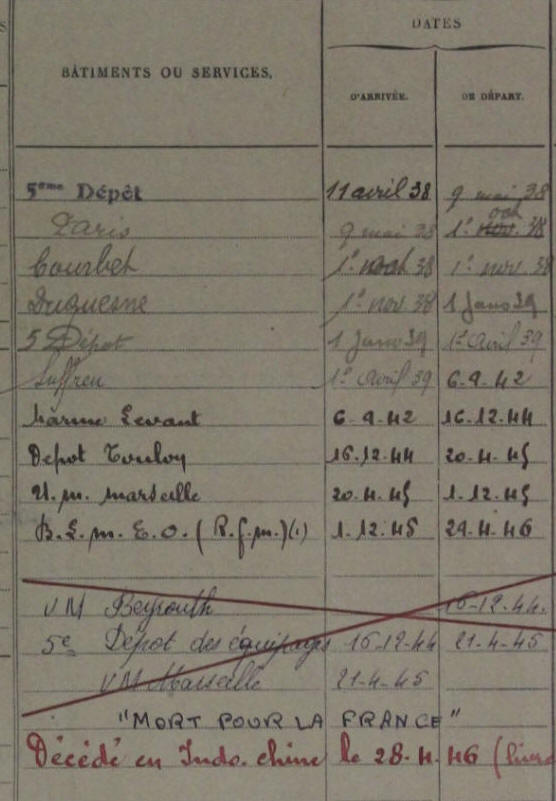 DATES
BÂTIMENTS OU SERVICES.
D'ARRIVÉE.
DE DÉPART.
5ème Dépôt 11 avril 38 9 mai 38
Paris 9 mai 38 1° oct nov. 38
Courbet 1° oct 38 1° nov. 38
Duquesne 1° nov 38 1 Janv 39
5 Dépot 1 Janv 39 1° Avril 39
Suffren 1° Avril 39 6.9.42
Marine Levant 6.9.42 16.12.44
Depot Toulon 16.12.44 20.4.45
U.M. Marseille 20.4.45 1.12.45
B.L.M.E.O. (R.F.M.)(1) 1.12.45 29.4.46
UM Beyrouth 16-12-44.
5e Dépot des équipages 16-12-44 21-4-45
UM Marseille 21-4-45
"MORT POUR LA FRANCE"
Décédé en Indo.chine le 28.4.46